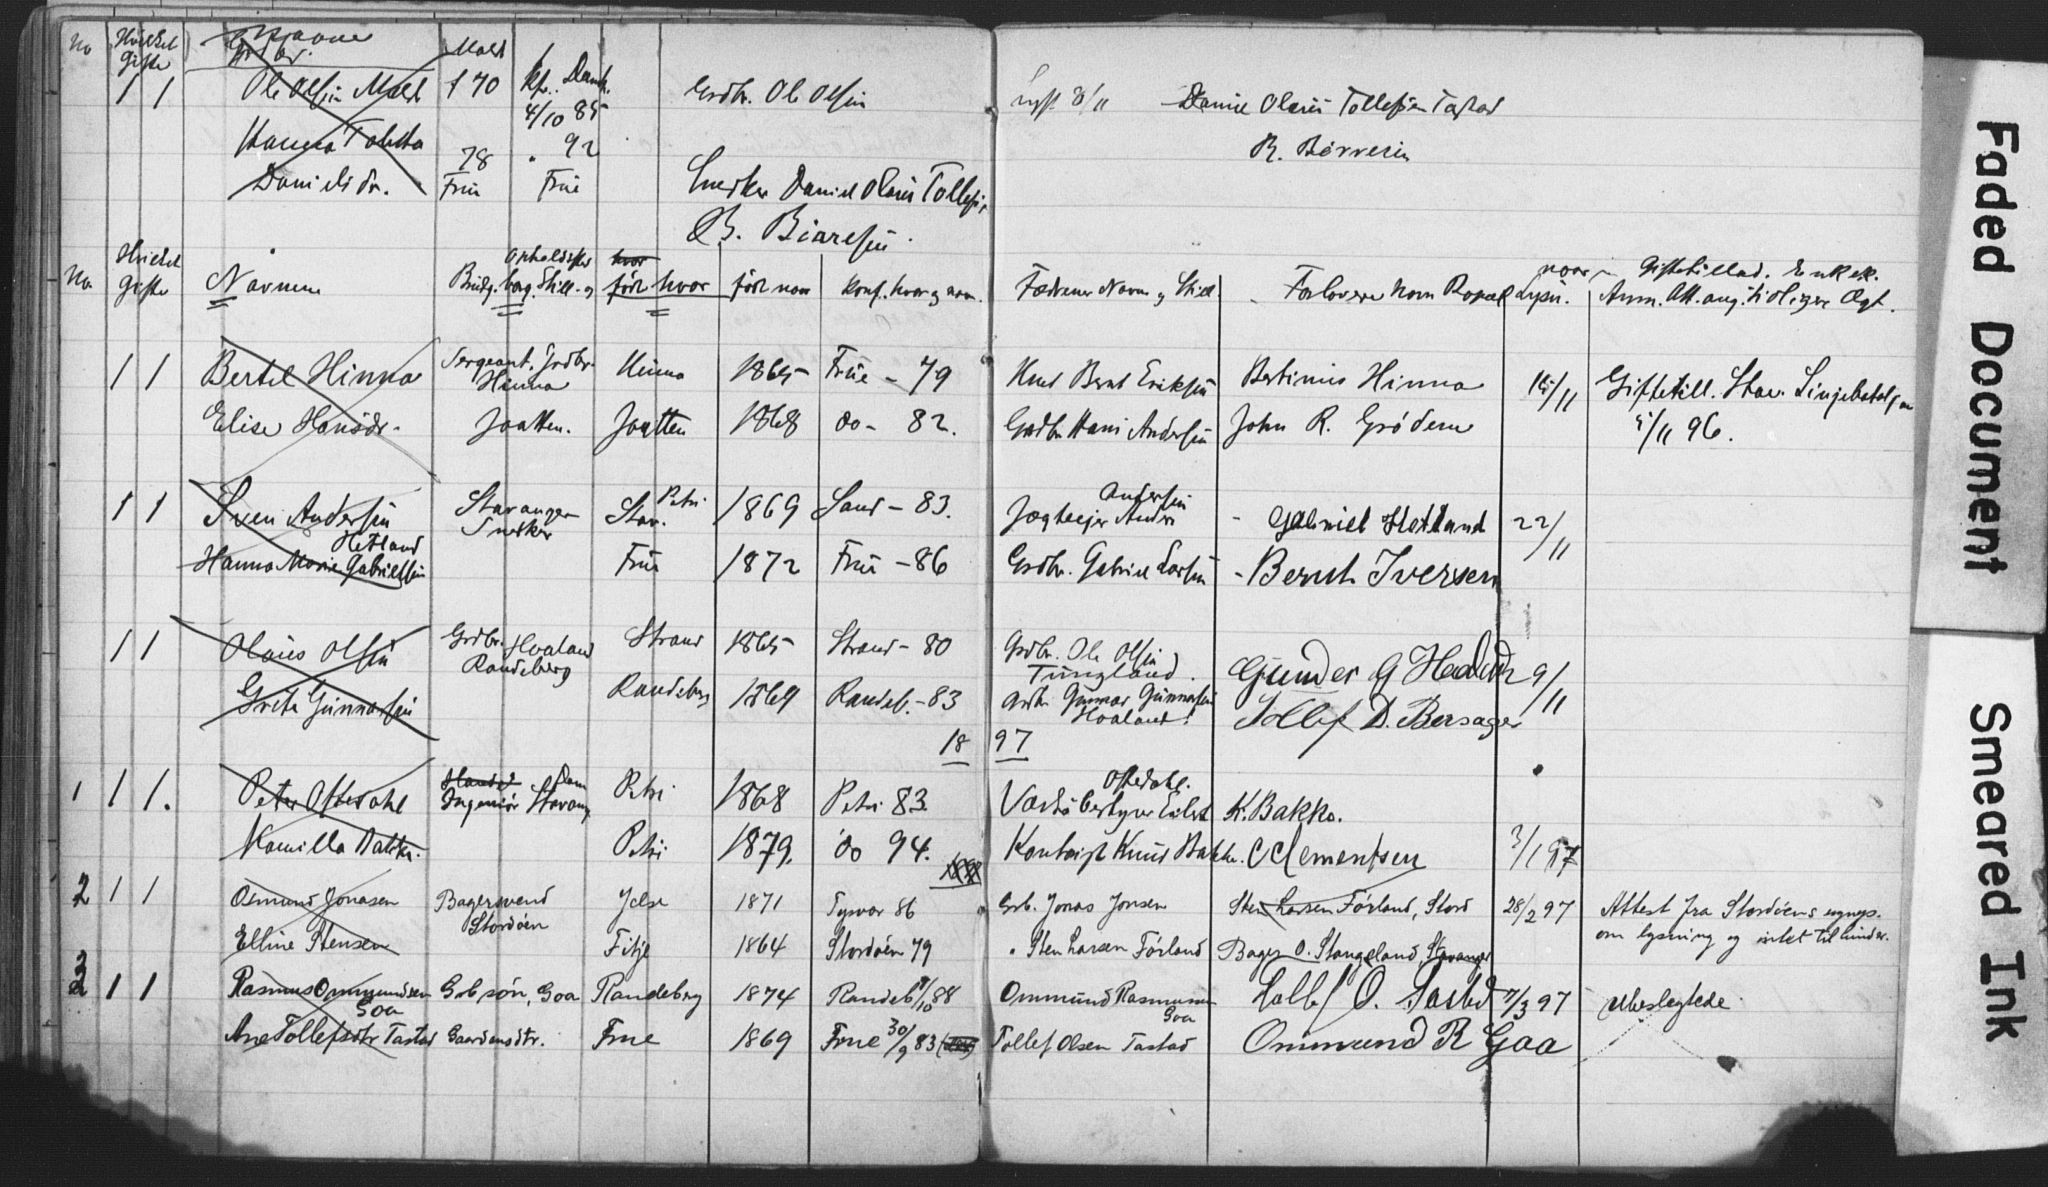 No Hvilket Gifte Navne
Grdbr.
1 1 Ole Olsen Malde f 70 Kfr. Domk. 4/10 85 Grdbr. Ole Olsen Lyst 8/11 Daniel Olaus Tollefsen Tastad
Hanna Tobitta 78 92 B. Börresen
Danielsdr. Frue Frue Snedker Daniel Olaus Tollefsen
B. Börresen.
No. Hvilket Gifte Navnene Opholdssted Brudg. brug. Still. og født hvor født naar Konf. hvor og naar. Fædrenes Navn og Still. Forlovere Navn Bopæl naar Lysn. Giftetillad. Enkek. Anm. Att. ang. tidligere Ægt.
1 1 Bertel Hinna Sergeant. Grdbr. Hinna Hinna 1865 Frue - 79 Knud Bernt Eriksen Bertinius Hinna 15/11 Giftetill. Stav. Linjebataljon
Elise Hansdr. Jaatten. Jaatten 1868 do - 82. Grdbr. Hans Andersen John R. Grödem 5/11 96.
1 1 Sven Andersen Stavanger Snedker Stav. Petri 1869 Sand - 83. Jægteejer Andr. Andersen - Gabriel Hetland 22/11
Hetland
Hanna Marie Gabrielsen Frue 1872 Frue - 86 Grdbr. Gabriel Larsen - Bernt Iversen
1 1 Olaus Olsen Grdbr. Hvaland Randeberg Strand 1865 Strand - 80 Grdbr. Ole Olsen Tungland. Gunder G Hadland 9/11
Grete Gunnarsen Randeberg 1869 Randeb. - 83 Grdbr. Gunnar Gunnarsen Hvaland. Tollef D. Bersager
18 97
1 1 1. Peter Oftedahl Ingeniör Stavang. Dom Petri 1868 Petri 83 Værksbestyrer Eilert Oftedahl. K. Bakko.
Kamilla Bakke. Petri 1879. do 94. Kontorist Knud Bakke. C Clementsen 3/1 97
2 1 1 Osmund Jonasen Bagersvend Stordöen Jelse 1871 Tysvær 86 Grb. Jonas Jonsen Sten Larsen Förland, Stord 28/2 97 Attest fra Stordöens sognep.
Elline Stensen Fitje 1864 Stordöen 79 " Sten Larsen Förland Bager O. Stangeland, Stavanger om lysning og intet til hinder.
3 1 1 Rasmus Ommundsen Goa Grb sön, Goa Randeberg 1874 Randeb 7/10 88 Ommund Rasmussen Goa Tollef O. Tasted 7/3 97 Ubeslegtede.
Ane Tollefsdtr Tastad Gaardmdtr. Frue 1869 Frue 30/9 83 Tollef Olsen Tastad Ommund R Goa
Faded Document
Smeared Ink